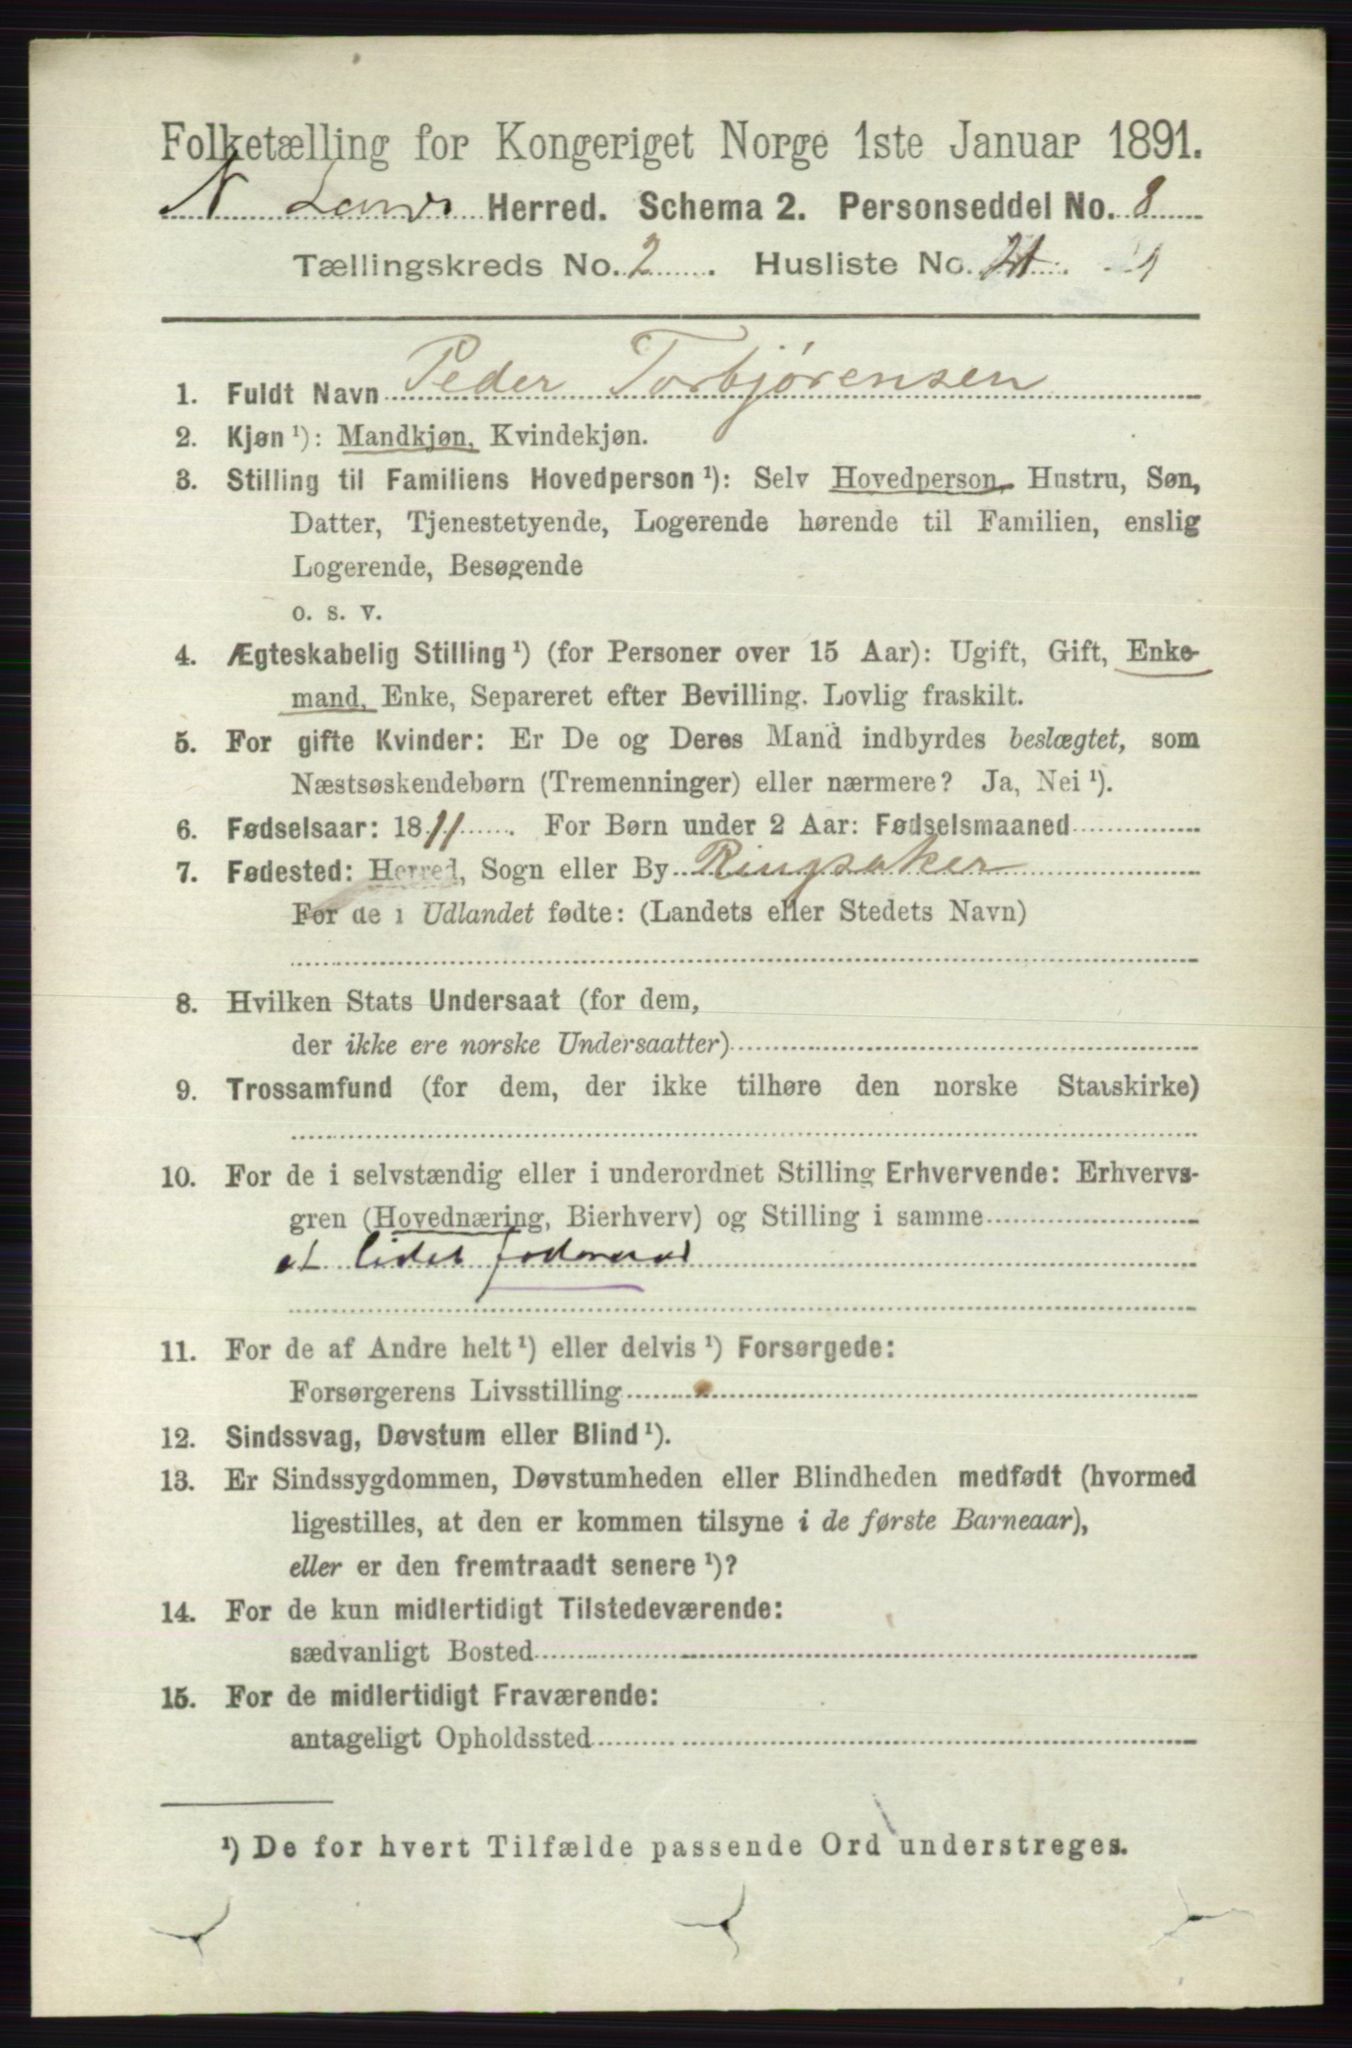 Folketælling for Kongeriget Norge 1ste Januar 1891.
N Lands Herred. Schema 2. Personseddel No. 8
Tællingskreds No. 2 . Husliste No. 21
1. Fuldt Navn Peder Torbjørensen
2. Kjøn ¹): Mandkjøn, Kvindekjøn.
3. Stilling til Familiens Hovedperson ¹): Selv Hovedperson, Hustru, Søn,
Datter, Tjenestetyende, Logerende hørende til Familien, enslig
Logerende, Besøgende
o. s. v.
4. Ægteskabelig Stilling ¹) (for Personer over 15 Aar): Ugift, Gift, Enke-
mand, Enke, Separeret efter Bevilling. Lovlig fraskilt.
5. For gifte Kvinder: Er De og Deres Mand indbyrdes beslægtet, som
Næstsøskendebørn (Tremenninger) eller nærmere? Ja, Nei ¹).
6. Fødselsaar: 1811. For Børn under 2 Aar: Fødselsmaaned
7. Fødested: Herred, Sogn eller By Ringsaker
For de i Udlandet fødte: (Landets eller Stedets Navn)
8. Hvilken Stats Undersaat (for dem,
der ikke ere norske Undersaatter)
9. Trossamfund (for dem, der ikke tilhøre den norske Statskirke)
10. For de i selvstændig eller i underordnet Stilling Erhvervende: Erhvervs-
gren (Hovednæring, Bierhverv) og Stilling i samme
et lidet foderaad
11. For de af Andre helt ¹) eller delvis ¹) Forsørgede:
Forsørgerens Livsstilling
12. Sindssvag, Døvstum eller Blind ¹).
13. Er Sindssygdommen, Døvstumheden eller Blindheden medfødt (hvormed
ligestilles, at den er kommen tilsyne i de første Barneaar),
eller er den fremtraadt senere ¹)?
14. For de kun midlertidigt Tilstedeværende:
sædvanligt Bosted
15. For de midlertidigt Fraværende:
antageligt Opholdssted
¹) De for hvert Tilfælde passende Ord understreges.